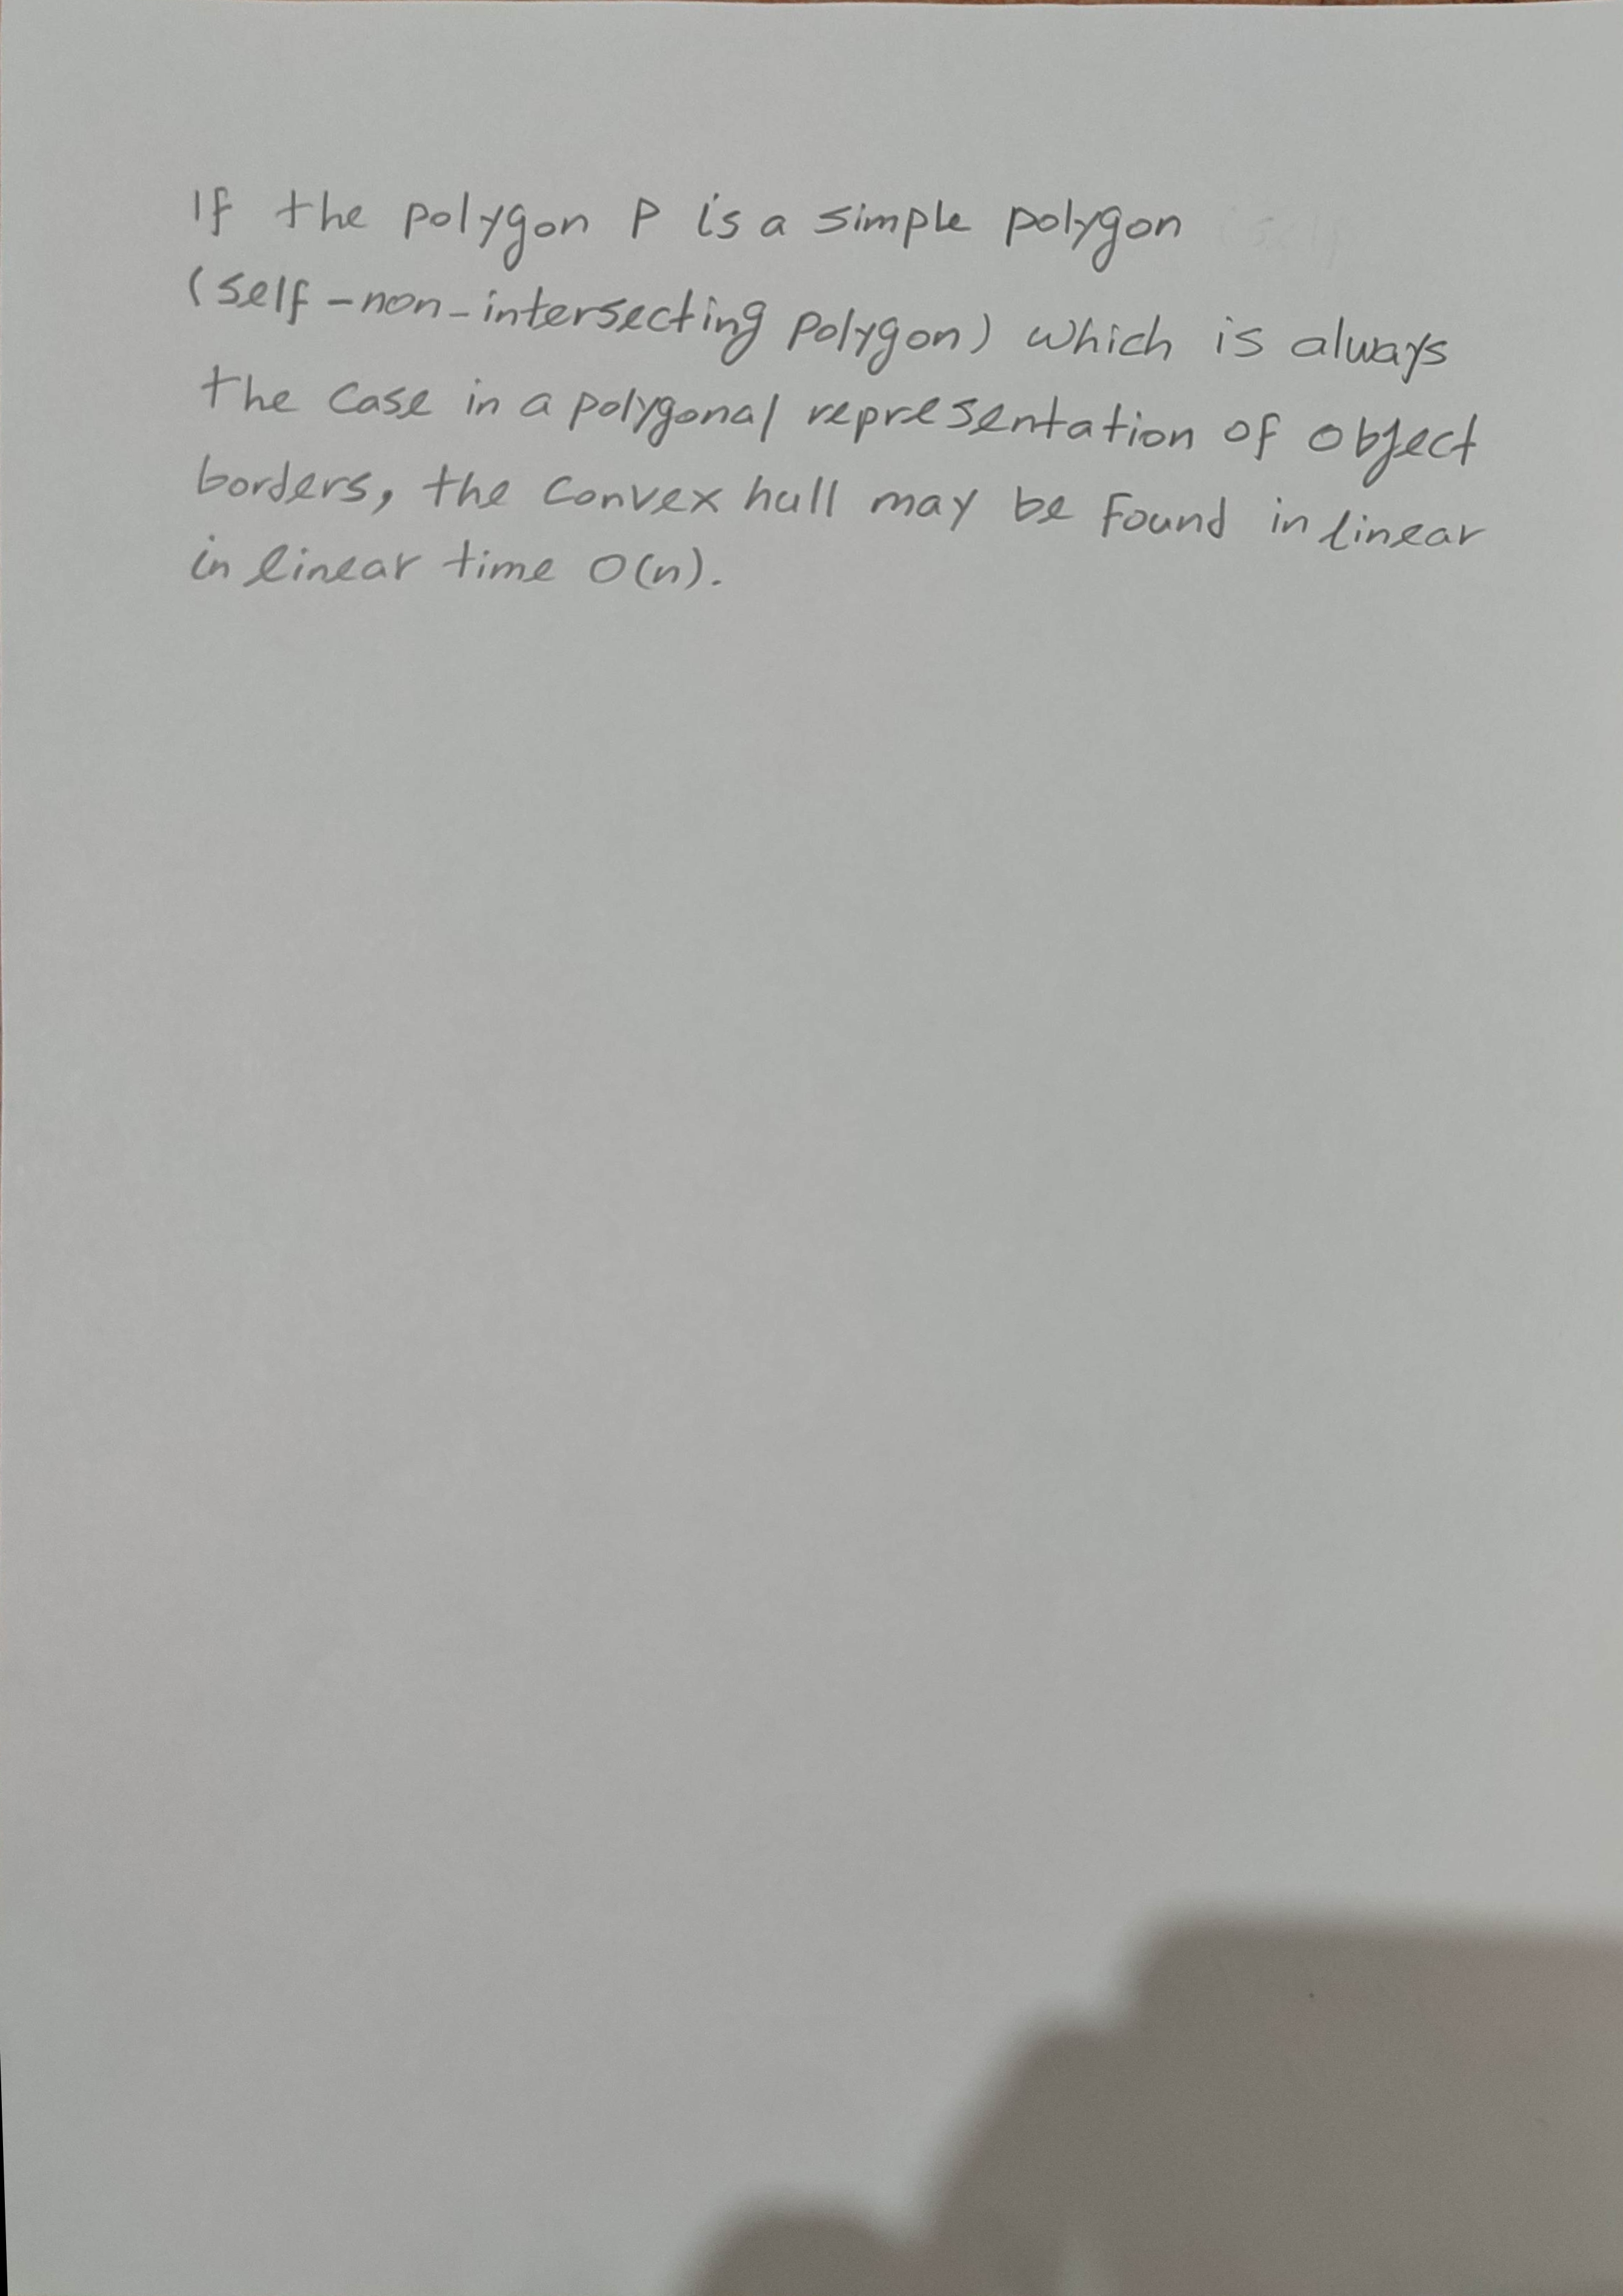 If the polygon P is a simple polygon
(self-non-intersecting polygon) which is always
the case in a polygonal representation of object
borders, the convex hull may be found in linear
in linear time O(n).